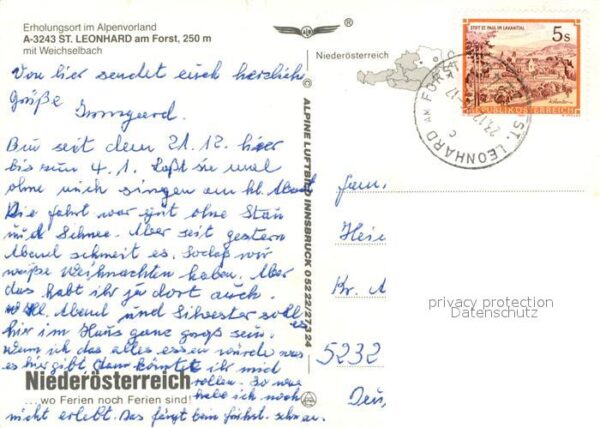 Erholungsort im Alpenvorland
A-3243 ST. LEONHARD am Forst, 250 m
mit Weichselbach
®
Niederösterreich
STIFT ST. PAUL IM LAVANTTAL
5s
REPUBLIK ÖSTERREICH
ST. LEONHARD AM FORST
Von hier sendet euch herzlich
Grüße Irmgard.
Bin seit dem 21.12. hier
bis zum 4.1. Laßt sie mal
ohne mich singen am hl. Abend
Die Fahrt war gut ohne Stau
und Schnee. Aber seit gestern
Abend schneit es. Sodaß wir
weiße Weihnachten haben. Aber
das habt ihr ja dort auch.
Hl. Abend und Silvester soll es
hier im Haus ganz groß sein.
Wenn ich das alles essen würde was
es hier gibt dann könntet ihr mich
rollen. So was
habe ich noch
nicht erlebt. Das fängt beim Frühst. schon an.
Niederösterreich
... wo Ferien noch Ferien sind!
© ALPINE LUFTBILD INNSBRUCK 05222/27324
Fam.
Hei
Kr. A
5232
Deu
privacy protection
Datenschutz